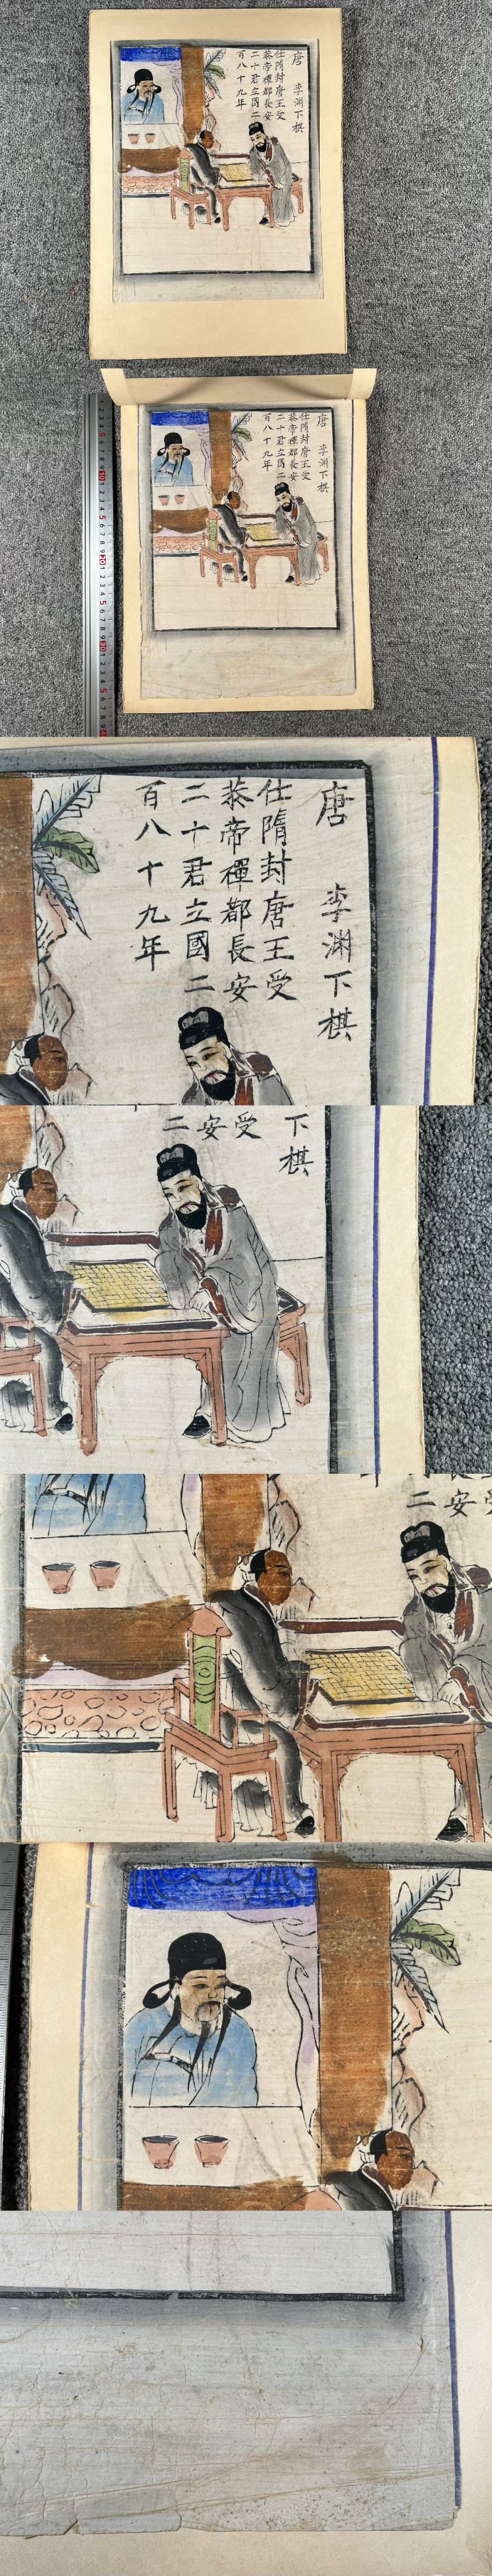 唐 李渊下棋
仕隋封唐王受
恭帝禪都長安
二十君立國二
百八十九年
唐 李渊下棋
仕隋封唐王受
恭帝禪都長安
二十君立國二
百八十九年
唐 李渊下棋
仕隋封唐王受
恭帝禪都長安
二十君立國二
百八十九年
下棋
受
安
二
安
二